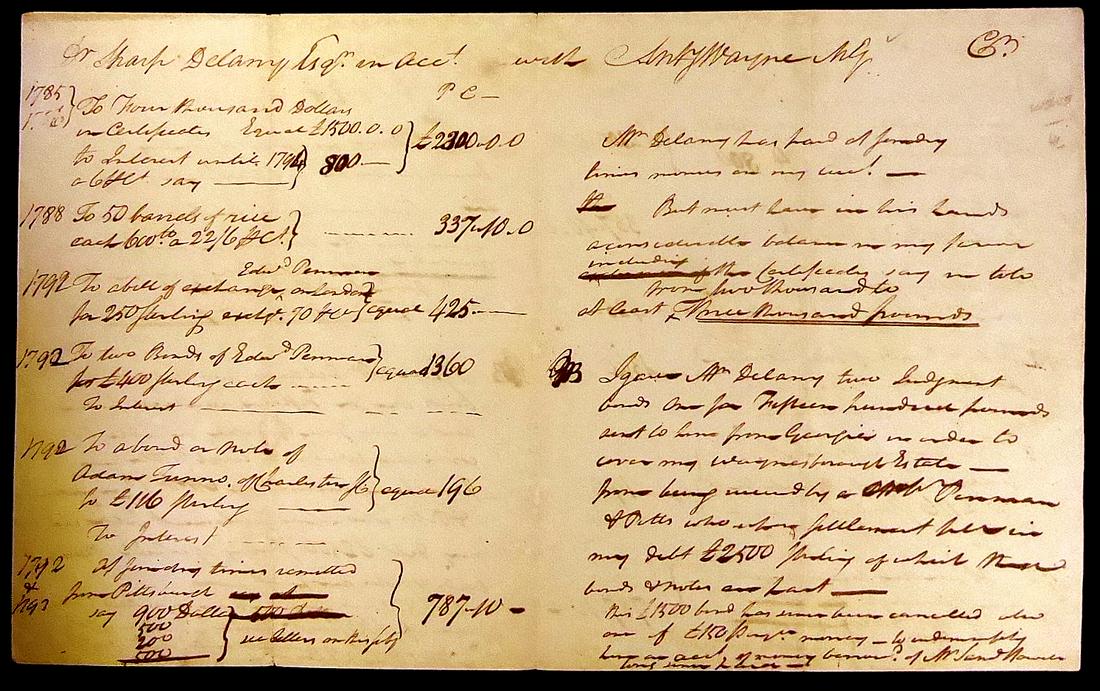 Dr Sharp Delany Esqr. in Acct. with Anty Wayne Cr.
1785
P C —
To Four thousand Dollars
in Certificates Equal £1500.0.0
£2300.0.0
to Interest until 1794
a 6 Ct. say —— 800 —
1788 To 50 barrels of rice
each 600 a 22/6 Ct. 337.10.0
Edwd. Penman
1792 To a bill of exchange on London
for 250 Sterling 70 equal 425 —
1792 To two Bonds of Edwd. Penman
for £400 Sterling each equal 1360
To Interest ——
1792 To a bond or Note of
Adam Tunno, of Charleston equal 196
for £116 Sterling ——
To Interest
1792
&
1793
At sundry times remitted
from Pittsburgh
say 900 Dollars
500
200
787.10 —
see letters on the
Mr Delany has paid at sunday
times monies on my acct. —
But must have in his hands
a considerable balance in my favor
including
the Certificates say in
from two thousand to
at least Three thousand pounds
I gave Mr Delany two Judgment
bonds one for Fifteen hundred pounds
sent to him from Georgia in order to
cover my Waynesborough Estate —
from being by a Penman
& Potts who where settlement
my debt £2500 Sterling of which these
bonds & notes are part —
this £1500 bond has never been cancelled also
one of £150 money —
an acct. of money of Mr
long since